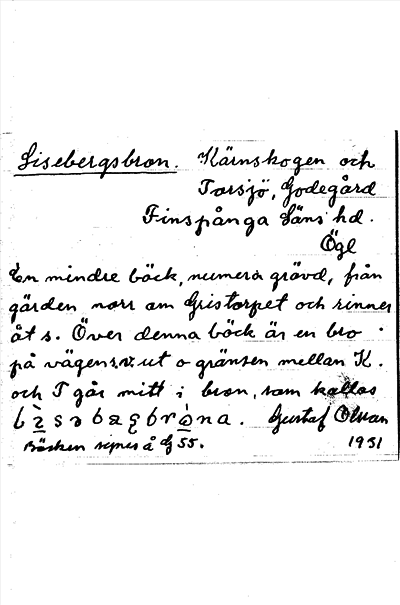 Lisebergsbron. Kärnskogen och
Torsjö, Godegård
Finspånga läns hd.
Ögl
En mindre bäck, numera grävd, från
gården norr om Gristorpet och rinner
åt s. Över denna bäck är en bro
på vägen ut o gränsen mellan K.
och T går mitt i bron, som kallas
Gustaf
Bäcken synes å 55. 1931